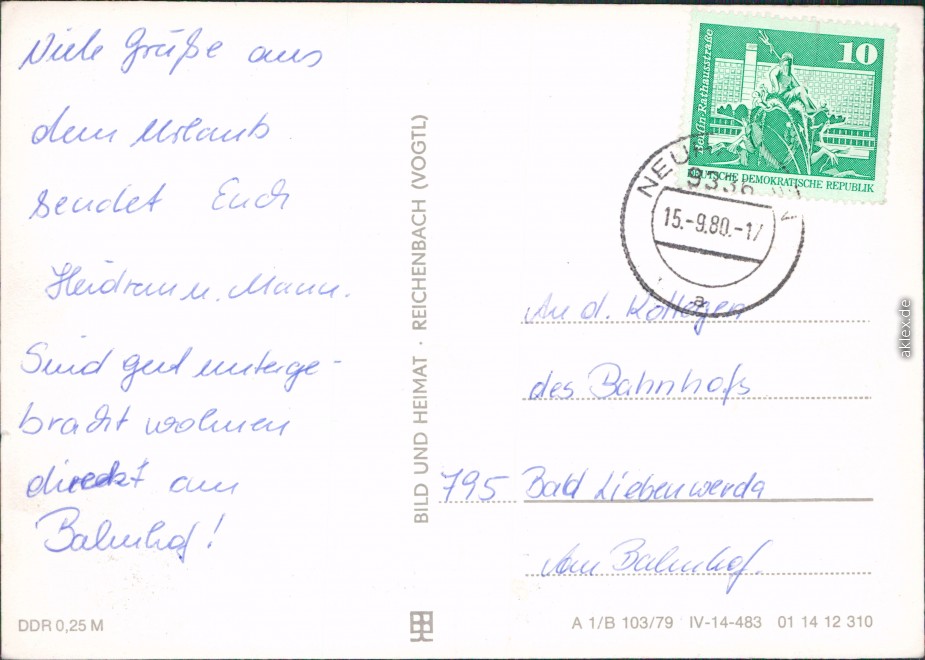 Viele Grüße aus
dem Urlaub
sendet Euch
Heidrun u. Mann.
Sind gut unterge-
bracht wohnen
direkt am
Bahnhof!
DDR 0,25 M
BILD UND HEIMAT · REICHENBACH (VOGTL)
10
Berlin-Rathausstraße
DEUTSCHE DEMOKRATISCHE REPUBLIK
15.-9.80.-17
a
An d. Kollegen
des Bahnhofs
795 Bad Liebenwerda
Am Bahnhof.
A 1/B 103/79 IV-14-483 01 14 12 310
aklex.de